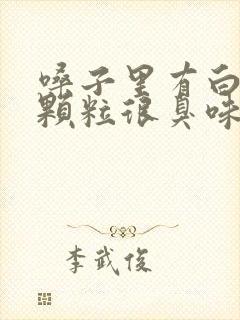 嗓子里有白
顆粒很臭味
李武俊